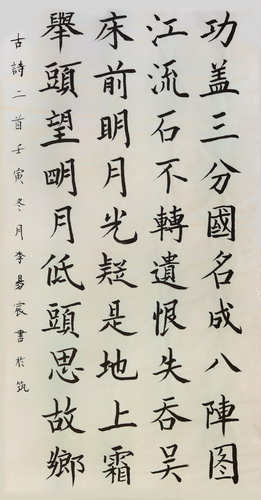 功盖三分國名成八陣图
江流石不轉遺恨失吞吴
床前明月光疑是地上霜
舉頭望明月低頭思故鄉
古詩二首壬寅冬月李易宸書於筑